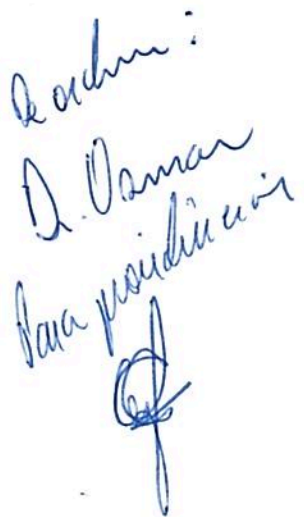 De ordem:
Dr. Osmar
Para providências